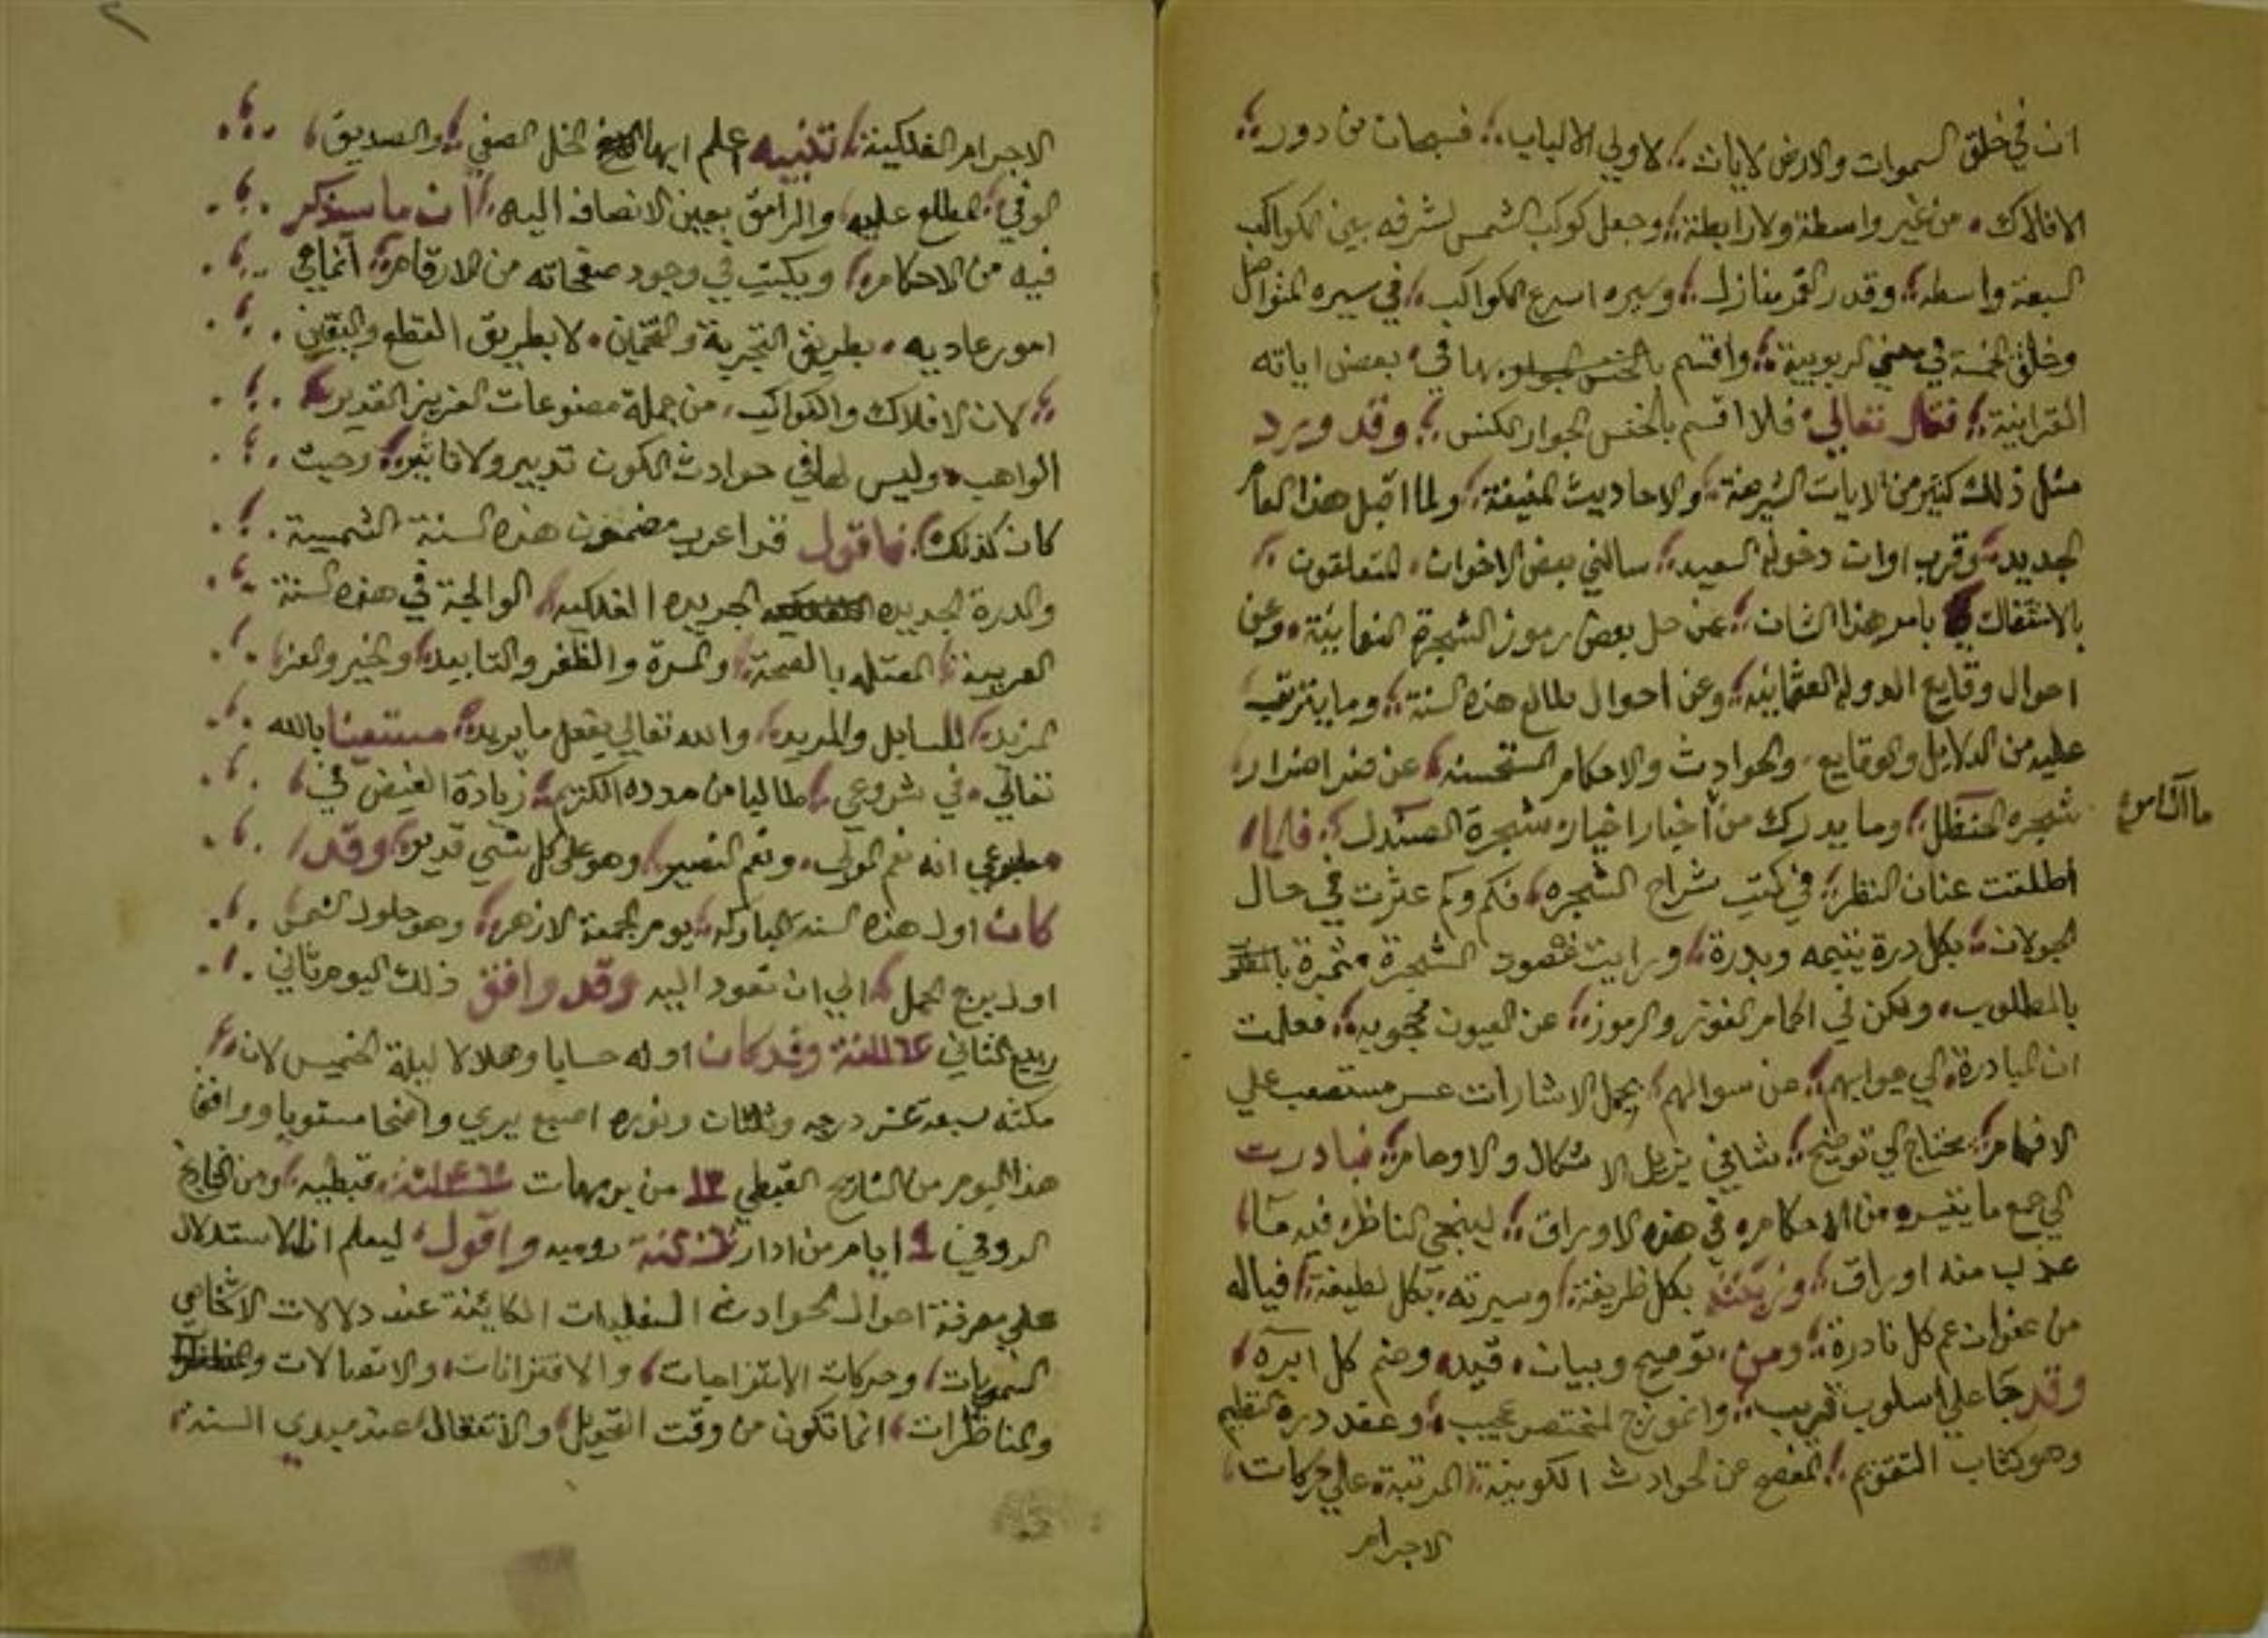 ان في خلق السموات والارض لايات لاولي الالباب فسبحان من دور
الافلاك من غير واسطة ولا رابطة وجعل كوكب الشمس لشرفه بين الكواكب
السبعة واسطه وقدر القمر منازل وسيره اسرع الكواكب في سيره المتواصل
وخلق الخمسة في معني الربوبية واقسم بها في بعض اياته
القرانية فقال تعالي فلا اقسم بالخنس الجوار الكنس وقد ورد
مثل ذلك كثير من الايات الشريفة والاحاديث المنيفة ولما اقبل هذا العام
الجديد وقرب اوان دخوله السعيد سالني بعض الاخوان المتعلقون
بالاشتغال بامر هذا الشان عن حل بعض رموز الشجرة النعمانية وعن
احوال وقايع الدولة العثمانيه وعن احوال طالع هذه السنة وما يترتب
عليه من الدلايل والوقايع والحوادث والاحكام المستحسنه عن
شجره الحنظل وما يدرك من اخبار اخيار شجرة الصندل
ما آل امره
اطلقت عنان النظر في كتب شراح الشجره فكم وكم عثرت في حال
الجولان بكل درة يتيمه وبدرة ورايت غصون الشجرة مثمرة
بالمطلوب ولكن في اكمام الغوز والرموز عن العيون محجوبه فعلمت
ان المبادرة الي جوابهم عن سوالهم بحمل الاشارات عسر مستصعب علي
الافهام محتاج الي توضيح شافي يزيل الاشكال والاوهام فبادرت
الي جمع ما تيسر من الاحكام في هذه الاوراق لينجي الناظر
عذب منه اوراق بكل ظريفة وسيرته بكل لطيفة فياله
من عنوان عم كل نادرة ومن توضيح وبيان قيد وضم كل
وقد جا علي اسلوب قريب وانموزج مختصر عجيب وعقد درة التنظيم
وهو كتاب التقويم المفصح عن الحوادث الكونية المرتبة علي حركات
الاجرام
الاجرام الفلكية تنبيه اعلم ايها الخل الصفي والصديق
الوفي المطلع عليه والرامق بعين الانصاف اليه ان ما سيذكر
فيه من الاحكام ويكتب في وجود صفحاته من الارقام انما هي
امور عاديه بطريق التجربة والتخمين لا بطريق القطع واليقين
لان الافلاك والكواكب من جملة مصنوعات العزيز القدير
الواهب وليس لها في حوادث الكون تدبير ولا تاثير وحيث
كان كذلك فاقول قد اعرب مضمون هذه السنة الشمسية
والدرة الجديده الجريده الفلكيه الوالجة في هذه السنة
العربية بالصحة والمسرة والظفر والتاييد والخير والعز
المزيد للسايل والمريد والله تعالي يفعل ما يريد مستعينا بالله
تعالي في شروعي طالبا من مدده الكريم زيادة الفيض في
انه نعم المولي ونعم النصير وهو علي كل شي قدير وقد
كان اول هذه السنه المباركه يوم الجمعة الازهر وهو حلول الشمس
اول برج الحمل الي ان تعود اليه وقد وافق ذلك اليوم ثاني
ربيع الثاني وقد كان اوله حسابا وهلالا ليلة الخميس لان
مكثه سبعة عشر درجه وثلثان ونوره اصبع يري واضحا مستويا ووافق
هذا اليوم من التاريخ القبطي ١٣ من برمهات قبطيه ومن التاريخ
الرومي ٩ ايام من ادار روميه واقول ليعلم ان الاستدلال
علي معرفة احوال الحوادث السفليات الكائنة عند دلالات الاشخاص
السمويات وحركات الامتزاجات والاقترانات والاتصالات
والمناظرات انما تكون من وقت التحويل والانتقال عند مبدي السنة